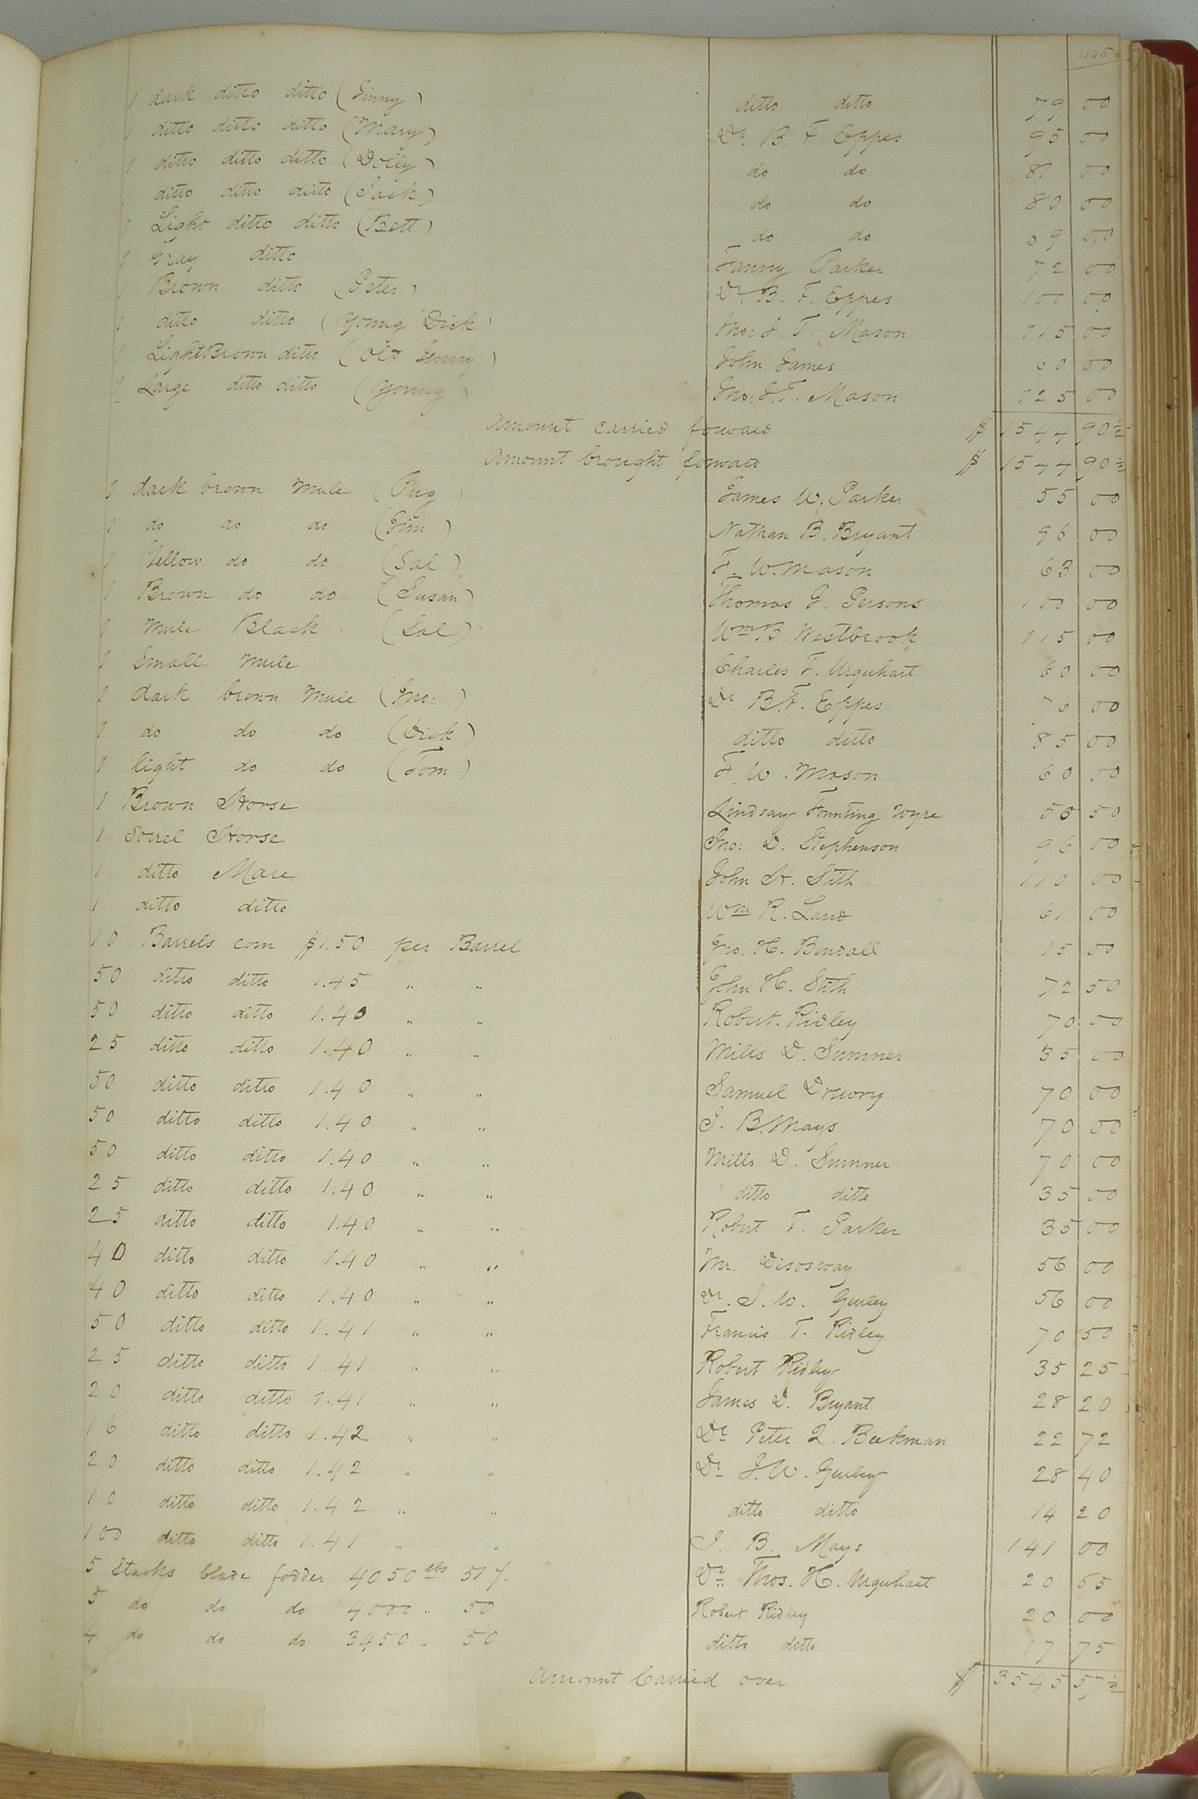 405
1 dark ditto ditto (Jinny) ditto ditto 79 00
1 ditto ditto ditto (Mary) Dr. B. F. Eppes 95 00
1 ditto ditto ditto (Dolly) do do 81 00
1 ditto ditto ditto (Jack) do do 80 00
1 Light ditto ditto (Bett) do do 69 00
1 Gray ditto Fanny Parker 72 00
1 Brown ditto (Peter) Dr. B. F. Eppes 100 00
1 ditto ditto (Young Dick) Jno: J. T. Mason 115 00
1 Light Brown ditto (Old Jenny) John James 60 00
1 Large ditto ditto (Young) Jno: J. T. Mason 125 00
Amount carried forward $ 1544 90½
Amount brought forward $ 1544 90½
1 dark brown Mule (Pug) James W. Parker 55 00
1 do do do (Jim) Nathan B. Bryant 96 00
1 Yellow do do (Sal) F. W. Mason 63 00
1 Brown do do (Susan) Thomas G. Persons 100 00
1 Mule Black (Sal) Wm B. Westbrook 115 00
1 Small Mule Charles F. Urquhart 60 00
1 dark brown Mule (Jno:) Dr. B. F. Eppes 76 00
1 do do do (Dick) ditto ditto 85 00
1 light do do (Tom) F. W. Mason 60 00
1 Brown Horse Lindsay 50 50
1 Sorrel Horse Jno: D. Stephenson 96 00
1 ditto Mare John H. Stith 110 00
1 ditto ditto Wm R. Land 61 00
10 Barrels corn $1.50 per Barrel Jno. H. Bendall 15 00
50 ditto ditto 1.45 " " John H. Stith 72 50
50 ditto ditto 1.40 " " Robert Ridley 70 00
25 ditto ditto 1.40 " " Mills D. Sumner 35 00
50 ditto ditto 1.40 " " Samuel Drewry 70 00
50 ditto ditto 1.40 " " J. B. Mays 70 00
50 ditto ditto 1.40 " " Mills D. Sumner 70 00
25 ditto ditto 1.40 " " ditto ditto 35 00
25 ditto ditto 1.40 " " Robert T. Parker 35 00
40 ditto ditto 1.40 " " Mr. Disosway 56 00
40 ditto ditto 1.40 " " Dr. J. W. Gurley 56 00
50 ditto ditto 1.41 " " Francis T. Ridley 70 50
25 ditto ditto 1.41 " " Robert Ridley 35 25
20 ditto ditto 1.41 " " James D. Bryant 28 20
16 ditto ditto 1.42 " " Dr Peter Q. Beekman 22 72
20 ditto ditto 1.42 " " Dr J. W. Gurley 28 40
10 ditto ditto 1.42 " " ditto ditto 14 20
100 ditto ditto 1.41 " " J. B. Mays 141 00
5 Stacks blade fodder 4050 lbs 51 Dr. Thos. H. Urquhart 20 65
5 do do do 4000 " 50 Robert Ridley 20 00
4 do do do 3450 " 50 ditto ditto 17 75
Amount Carried over $ 3545 57½